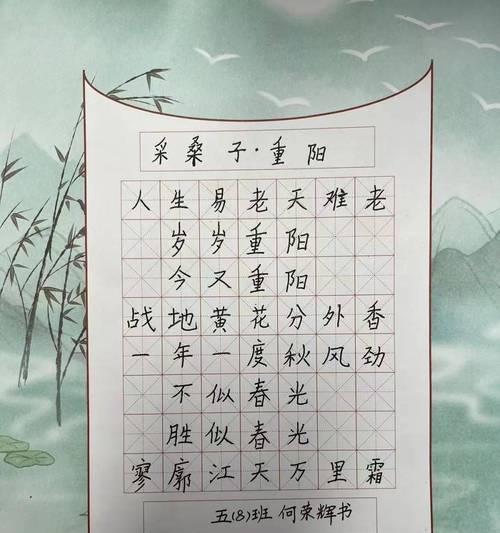 采桑子·重阳
人生易老天难老
岁岁重阳
今又重阳
战地黄花分外香
一年一度秋风劲
不似春光
胜似春光
寥廓江天万里霜
五(8)班 何荣辉书